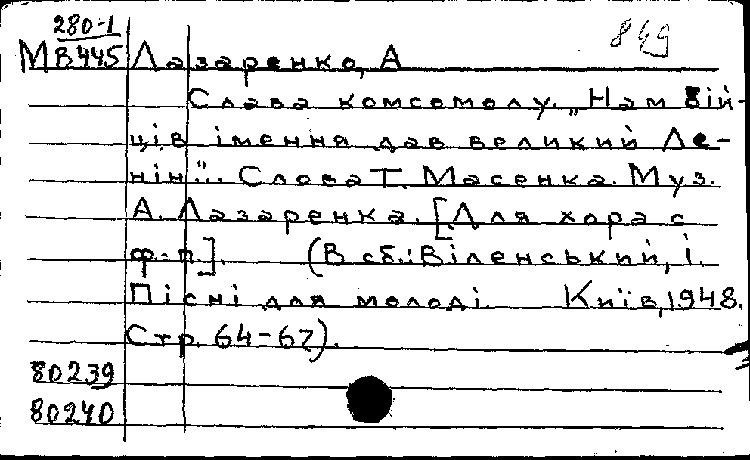 280-1
849
МВ445 Лазаренко, А
Слава комсомолу. „Нам бій-
ців імення дав великий Ле-
нін". Слова Т. Масенка. Муз.
А. Лазаренка. [Для хора с
ф.-п.]. (В сб.: Віленський, І.
Пісні для молоді. Київ, 1948.
Стр. 64-67).
80239
80240